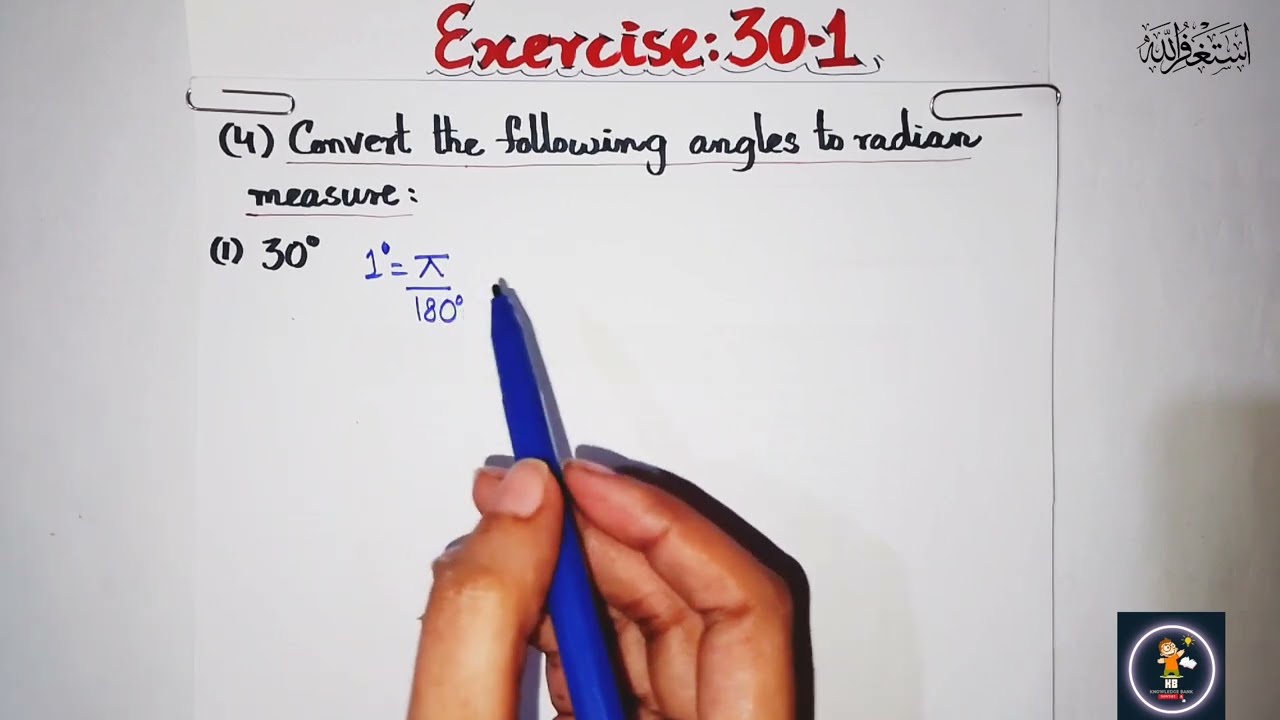 Exercise: 30.1
استغفر الله
(4) Convert the following angles to radian
measure:
(1) 30° 1° = π
180°
KB
KNOWLEDGE BANK